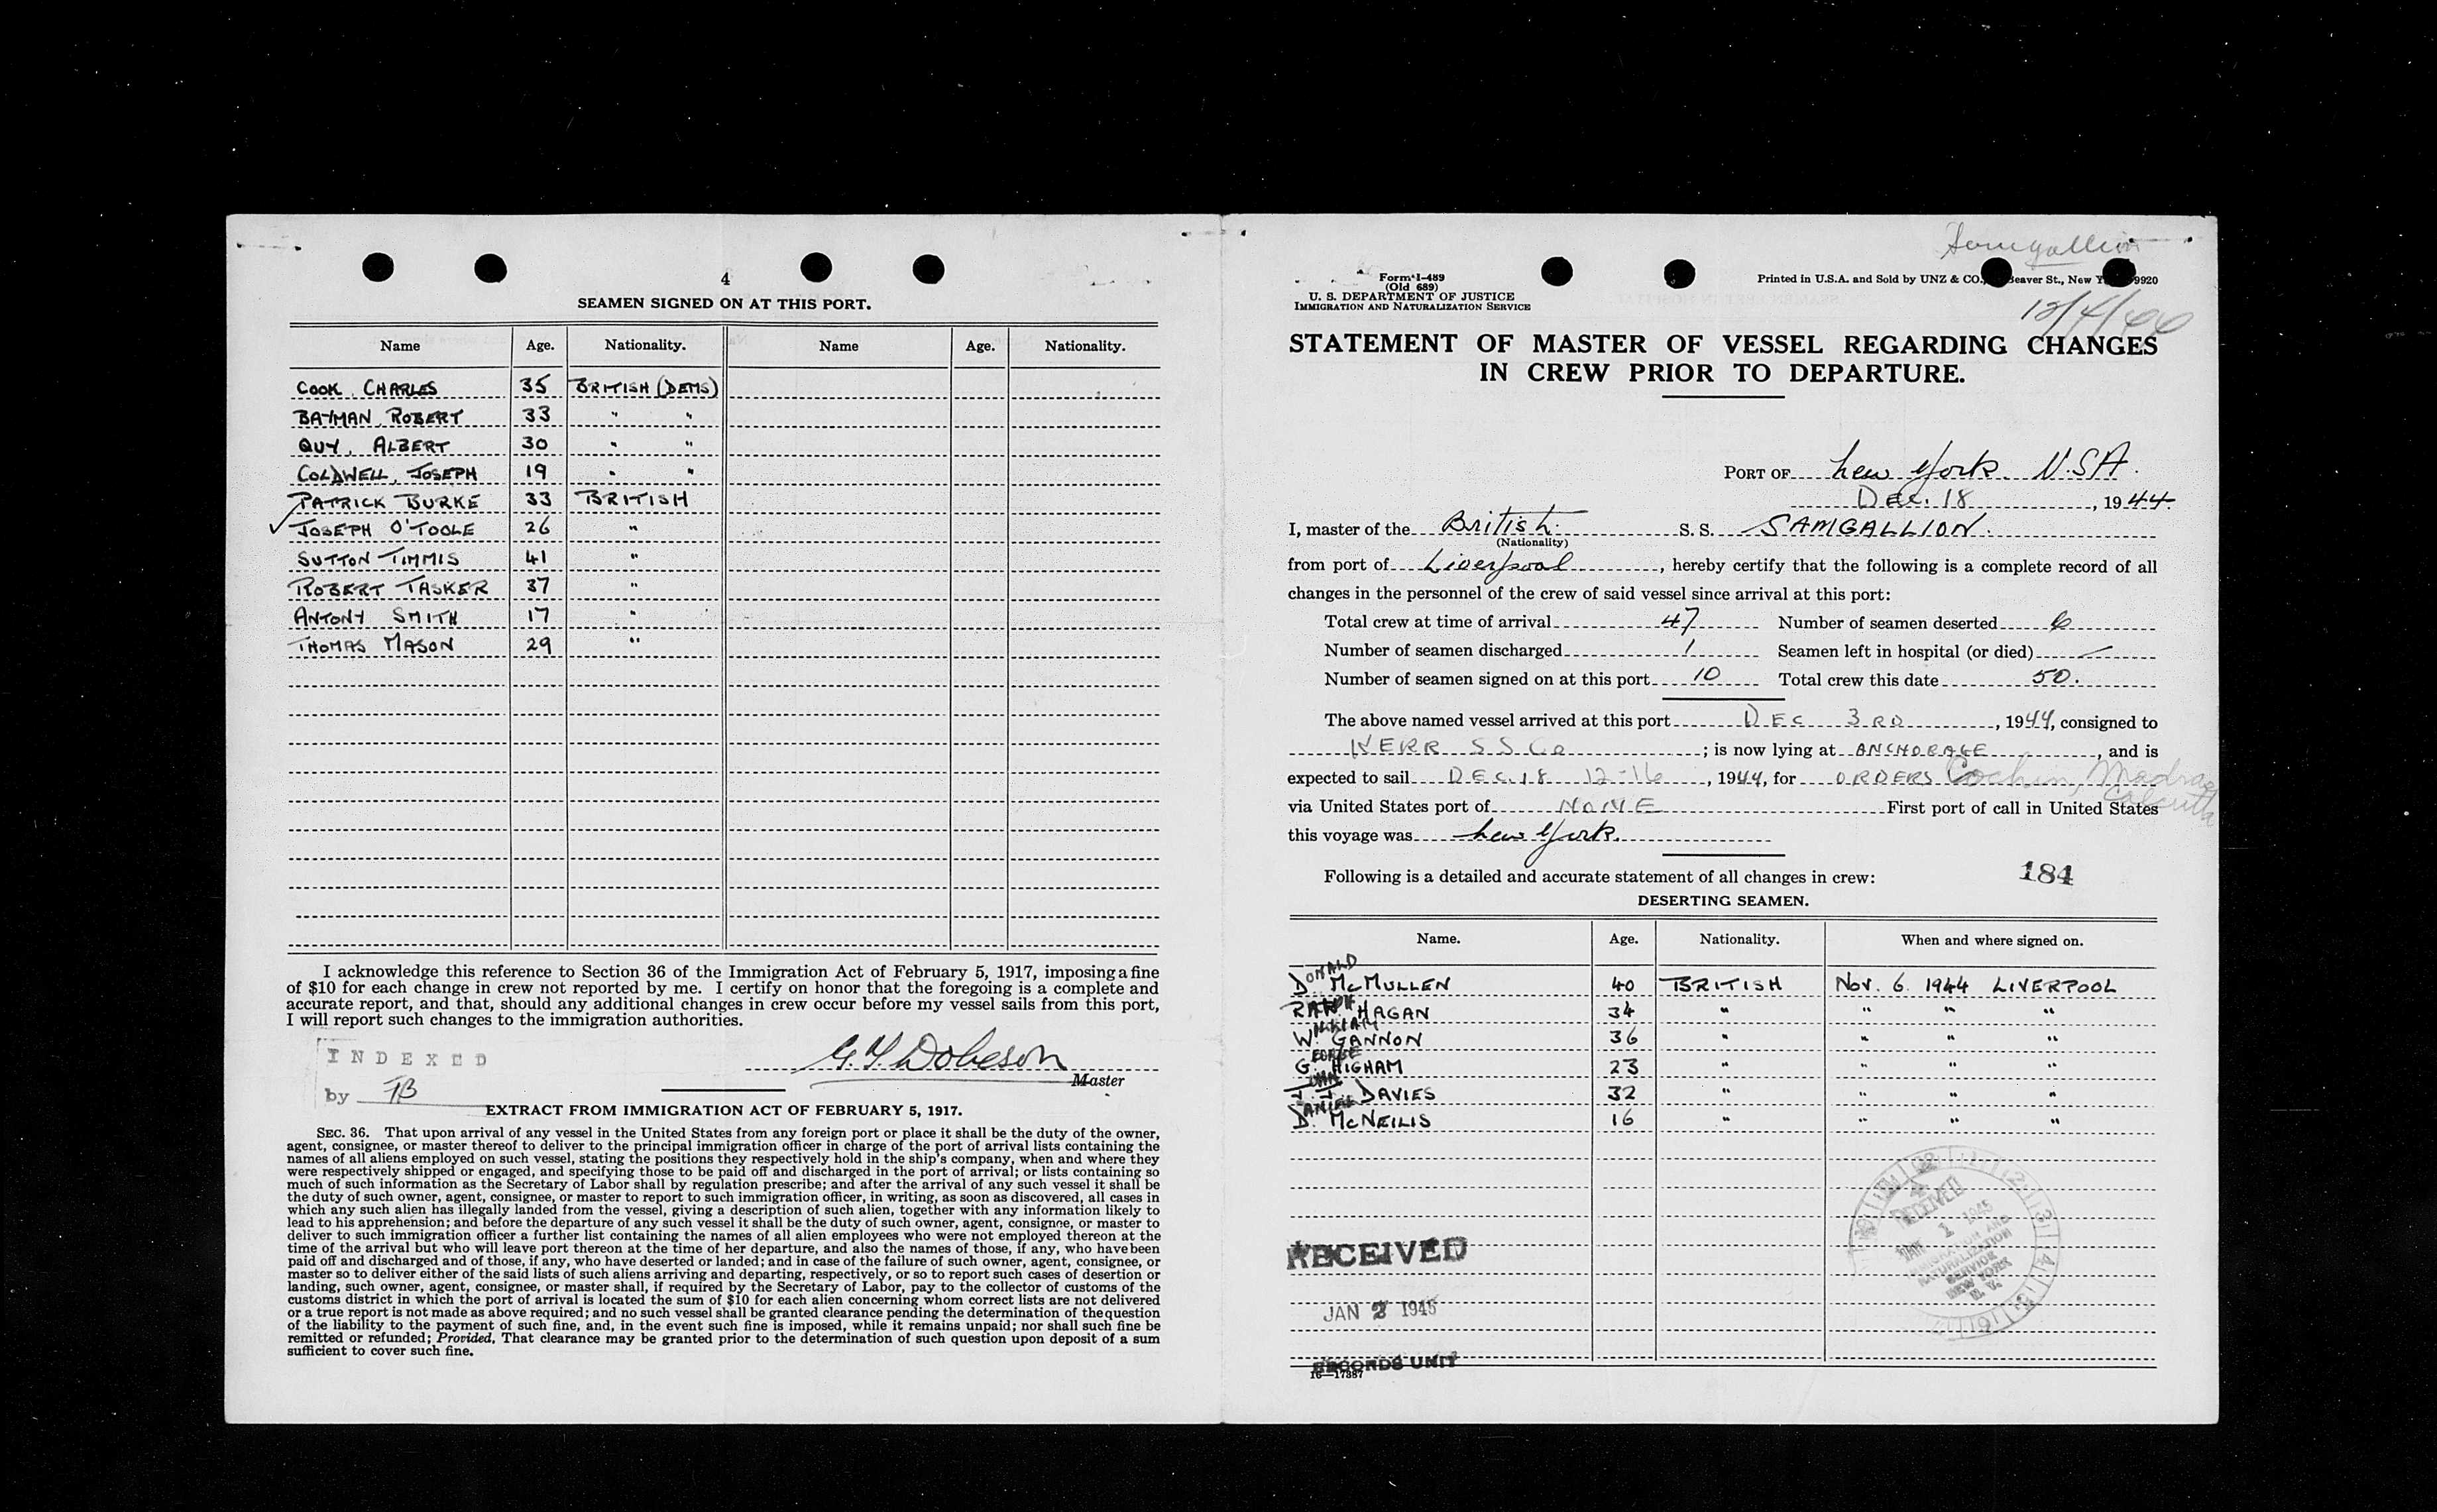 4
SEAMEN SIGNED ON AT THIS PORT.
Name Age. Nationality. Name Age. Nationality.
COOK, CHARLES 35 BRITISH (DEMS)
BATMAN, ROBERT 33 " "
QUY, ALBERT 30 " "
COLDWELL, JOSEPH 19 " "
PATRICK BURKE 33 BRITISH
JOSEPH O'TOOLE 26 "
SUTTON TIMMIS 41 "
ROBERT TASKER 37 "
ANTONY SMITH 17 "
THOMAS MASON 29 "
I acknowledge this reference to Section 36 of the Immigration Act of February 5, 1917, imposing a fine
of $10 for each change in crew not reported by me. I certify on honor that the foregoing is a complete and
accurate report, and that, should any additional changes in crew occur before my vessel sails from this port,
I will report such changes to the immigration authorities.
INDEXED
by
G. Y. Dobeson
Master
EXTRACT FROM IMMIGRATION ACT OF FEBRUARY 5, 1917.
SEC. 36. That upon arrival of any vessel in the United States from any foreign port or place it shall be the duty of the owner,
agent, consignee, or master thereof to deliver to the principal immigration officer in charge of the port of arrival lists containing the
names of all aliens employed on such vessel, stating the positions they respectively hold in the ship's company, when and where they
were respectively shipped or engaged, and specifying those to be paid off and discharged in the port of arrival; or lists containing so
much of such information as the Secretary of Labor shall by regulation prescribe; and after the arrival of any such vessel it shall be
the duty of such owner, agent, consignee, or master to report to such immigration officer, in writing, as soon as discovered, all cases in
which any such alien has illegally landed from the vessel, giving a description of such alien, together with any information likely to
lead to his apprehension; and before the departure of any such vessel it shall be the duty of such owner, agent, consignee, or master to
deliver to such immigration officer a further list containing the names of all alien employees who were not employed thereon at the
time of the arrival but who will leave port thereon at the time of her departure, and also the names of those, if any, who have been
paid off and discharged and of those, if any, who have deserted or landed; and in case of the failure of such owner, agent, consignee, or
master so to deliver either of the said lists of such aliens arriving and departing, respectively, or so to report such cases of desertion or
landing, such owner, agent, consignee, or master shall, if required by the Secretary of Labor, pay to the collector of customs of the
customs district in which the port of arrival is located the sum of $10 for each alien concerning whom correct lists are not delivered
or a true report is not made as above required; and no such vessel shall be granted clearance pending the determination of the question
of the liability to the payment of such fine, and, in the event such fine is imposed, while it remains unpaid; nor shall such fine be
remitted or refunded; Provided, That clearance may be granted prior to the determination of such question upon deposit of a sum
sufficient to cover such fine.
Samgallion
Form I-489
(Old 689)
U. S. DEPARTMENT OF JUSTICE
IMMIGRATION AND NATURALIZATION SERVICE
Printed in U.S.A. and Sold by UNZ & CO., Beaver St., New Y 9920
12/4/44
STATEMENT OF MASTER OF VESSEL REGARDING CHANGES
IN CREW PRIOR TO DEPARTURE.
PORT OF New York. U.S.A.
DEC. 18, 1944.
I, master of the British. S. S. SAMGALLION.
(Nationality)
from port of Liverpool, hereby certify that the following is a complete record of all
changes in the personnel of the crew of said vessel since arrival at this port:
Total crew at time of arrival 47 Number of seamen deserted 6
Number of seamen discharged 1 Seamen left in hospital (or died) —
Number of seamen signed on at this port 10 Total crew this date 50.
The above named vessel arrived at this port DEC 3RD, 1944, consigned to
KERR SS Co; is now lying at ANCHORAGE, and is
expected to sail DEC. 18 12-16, 1944, for ORDERS Cochin, Madras
Calcutta
via United States port of NONE First port of call in United States
this voyage was New York.
Following is a detailed and accurate statement of all changes in crew:
184
DESERTING SEAMEN.
Name. Age. Nationality. When and where signed on.
DONALD
D. McMULLEN 40 BRITISH Nov. 6. 1944 LIVERPOOL
RALPH HAGAN 34 " " " "
WILLIAM
W. GANNON 36 " " " "
GEORGE
G. HIGHAM 23 " " " "
JOHN
J. J. DAVIES 32 " " " "
DANIEL
D. McNEILIS 16 " " " "
RECEIVED
JAN 1 1945
IMMIGRATION AND
NATURALIZATION
SERVICE
NEW YORK
N. Y.
RECEIVED
JAN 2 1945
RECORDS UNIT
16—17387